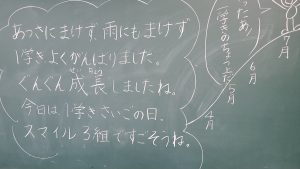 あつさにまけず、雨にもまけず
1学きよくがんばりました。
ぐんぐん成長しましたね。
せい ちょう
今日は1学きさいごの日、
スマイル3組ですごそうね。
7月
6月
5月
4月